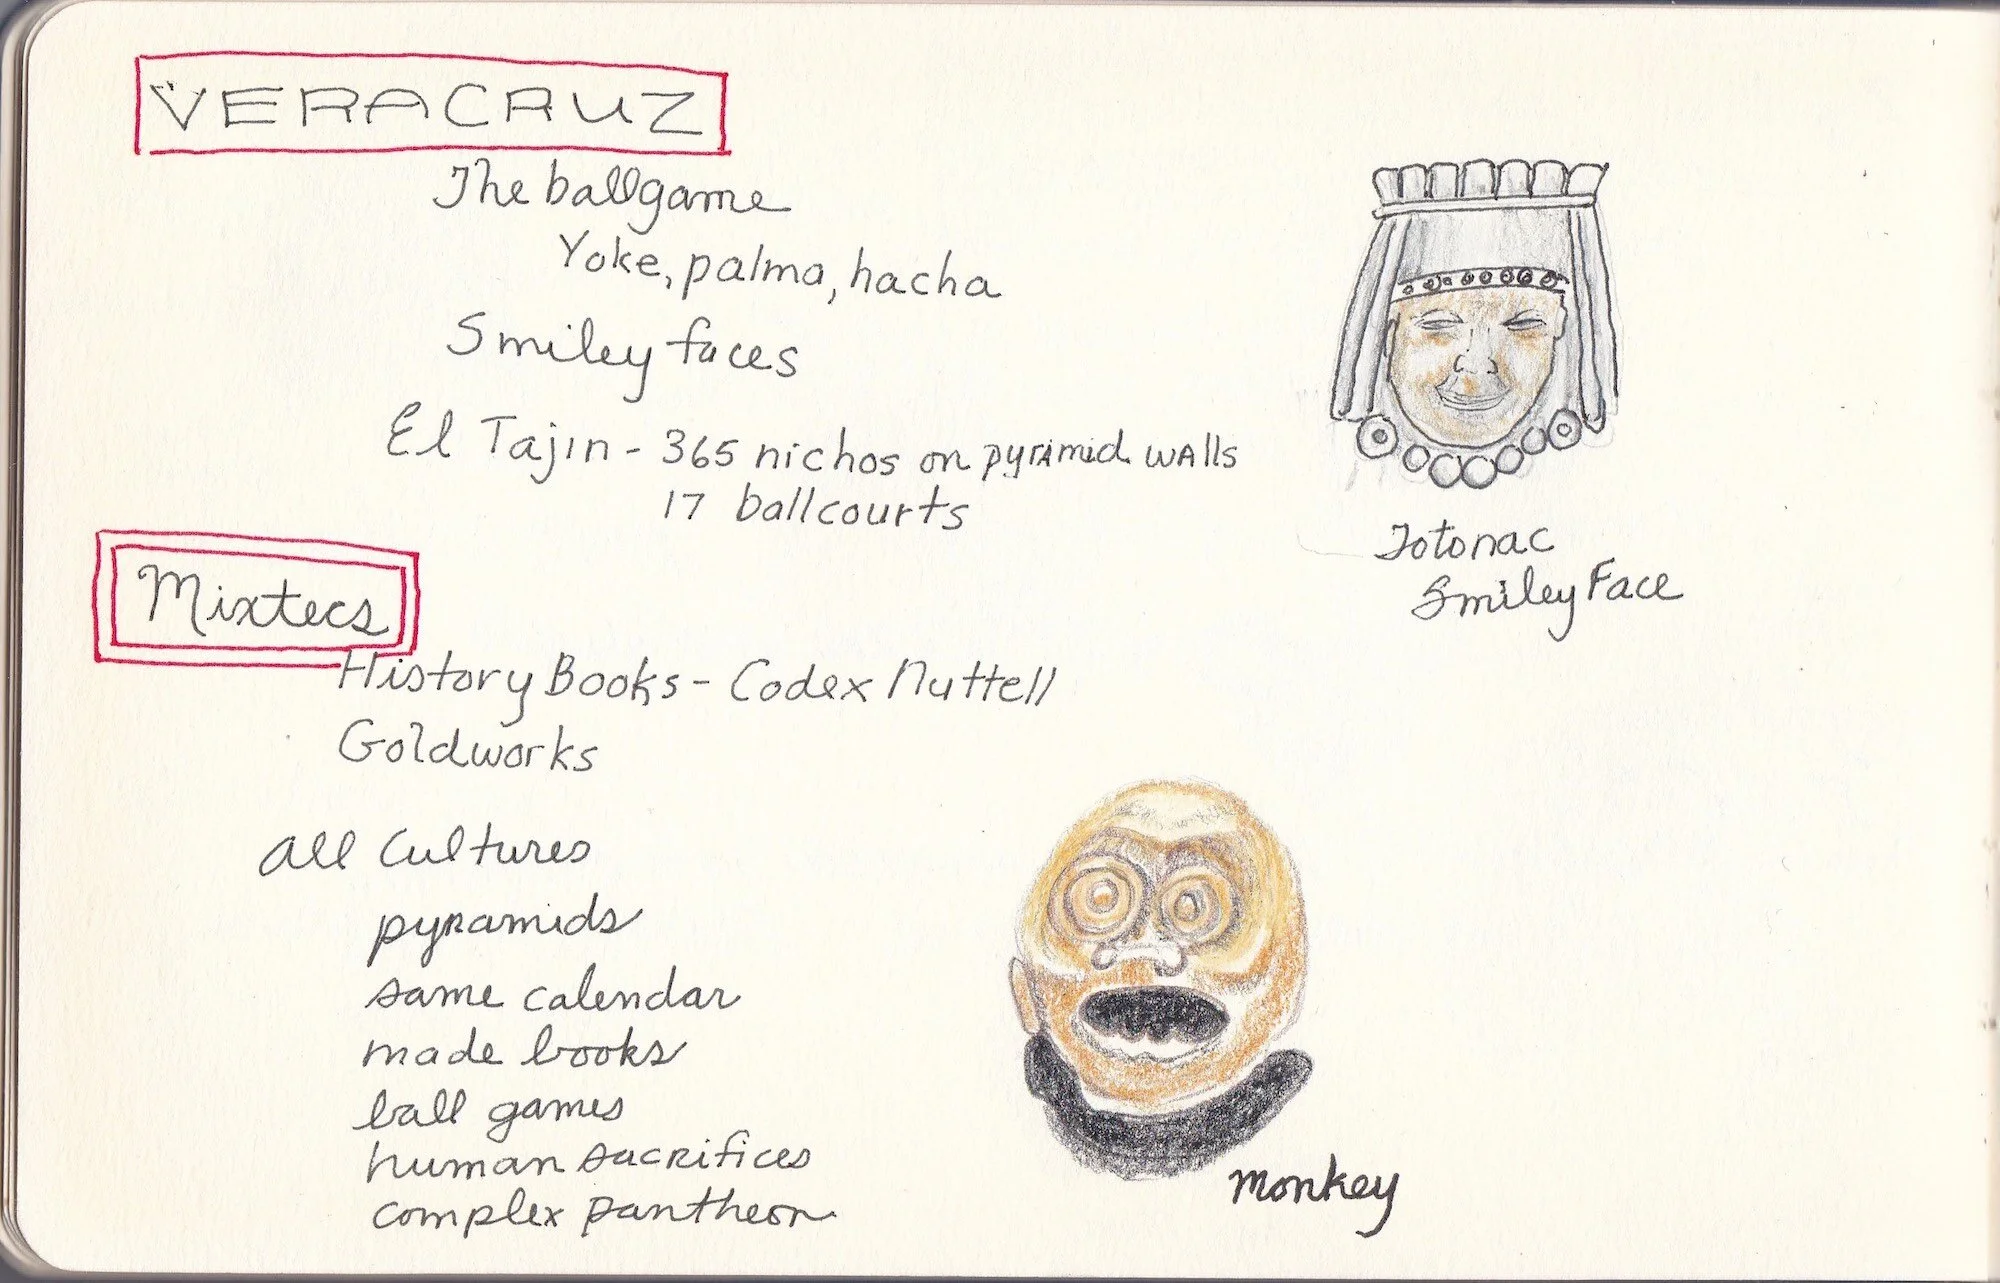 VERACRUZ
The ballgame
Yoke, palma, hacha
Smiley faces
El Tajin - 365 nichos on pyramid walls
17 ballcourts
Totonac
Smiley Face
Mixtecs
History Books - Codex Nuttell
Goldworks
All Cultures
pyramids
same calendar
made books
ball games
human sacrifices
complex pantheon
Monkey